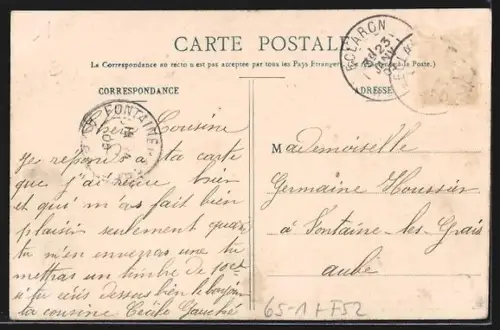 CARTE POSTALE
(La Correspondance au recto n'est pas acceptée par tous les Pays Etrangers. la Poste.)
CORRESPONDANCE
ADRESSE
ECLARON
23
FONTAINE
Chère Cousine
Je reponds a ta carte
que j'ai reçue bien
et qui m'as fait bien
plaisir seulement quand
tu m'en enverras une tu
mettras un timbre de 10ct
si tu écris dessus bien le bonjour
ta cousine Cécile Gauché
Mademoiselle
Germaine Houssier
à Fontaine-les-Grais
aube
65-1 H F52